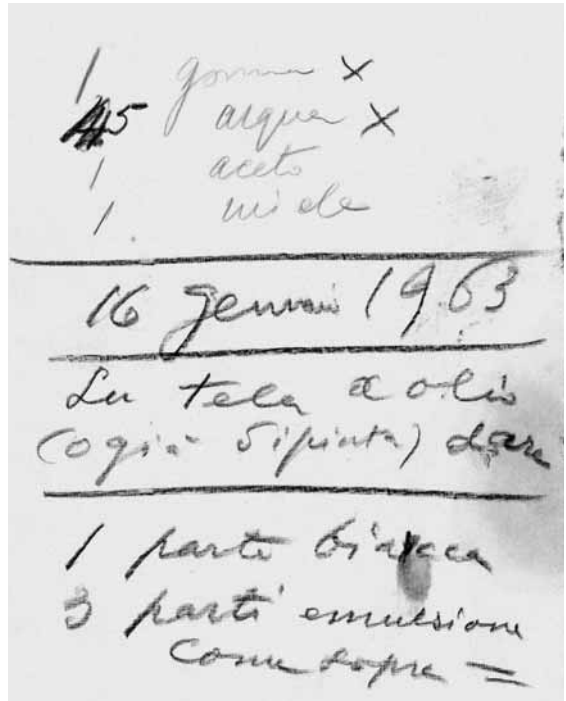 1 gomma x
5 acqua x
1 aceto
1. miele
16 gennaio 1963
Su tela a olio
(o già dipinta) dare
1 parte biacca
3 parti emulsione
come sopra =